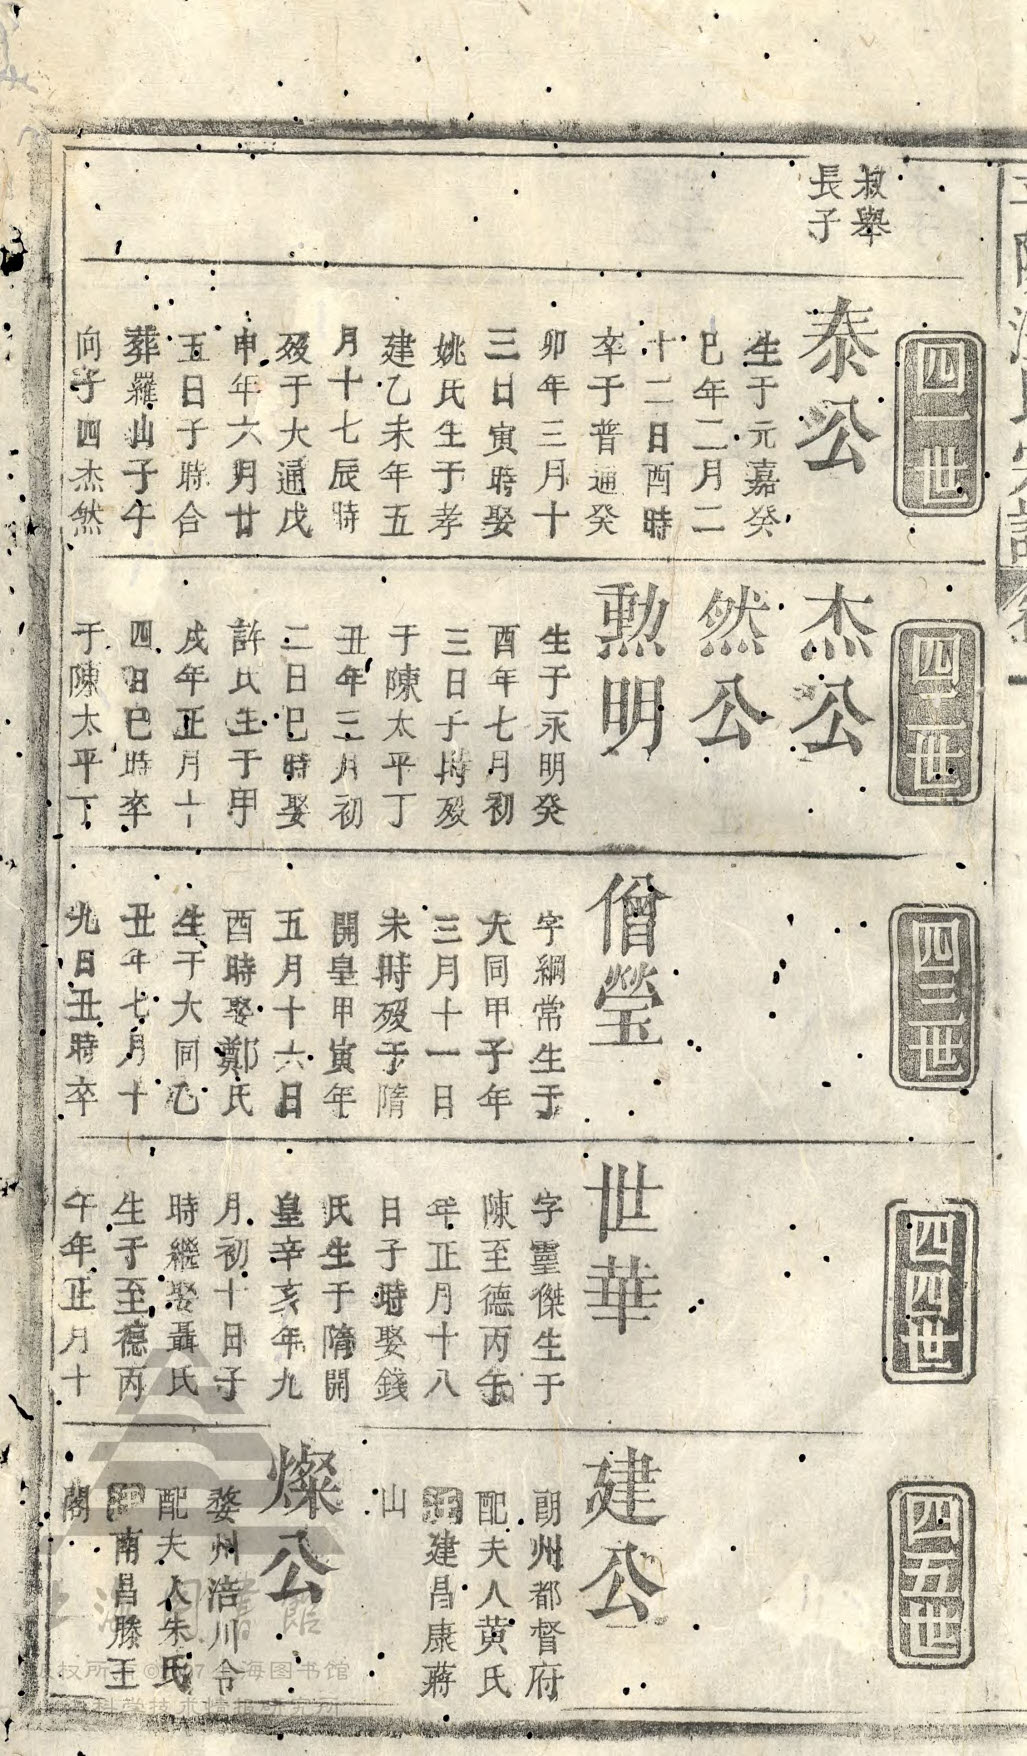 叔舉
長子
四一世
泰公
生于元嘉癸
巳年二月二
十二日酉時
卒于普通癸
卯年三月十
三日寅時娶
姚氏生于孝
建乙未年五
月十七辰時
歿于大通戊
申年六月廿
五日子時合
葬羅山子午
向子四杰然
四二世
杰公
然公
勲明
生于永明癸
酉年七月初
三日子時歿
于陳太平丁
丑年三月初
二日巳時娶
許氏生于甲
戌年正月十
四日巳時卒
于陳太平丁
四三世
僧瑩
字綱常生于
大同甲子年
三月十一日
未時歿于隋
開皇甲寅年
五月十六日
酉時娶鄭氏
生于大同乙
丑年七月十
九日丑時卒
四四世
世華
字靈傑生于
陳至德丙午
年正月十八
日子時娶錢
氏生于隋開
皇辛亥年九
月初十日子
時繼娶聶氏
生于至德丙
午年正月十
四五世
建公
朗州都督府
配夫人黃氏
建昌康蔣
山
燦公
婺州涪川令
配夫人朱氏
南昌滕王
閣
上海圖書館